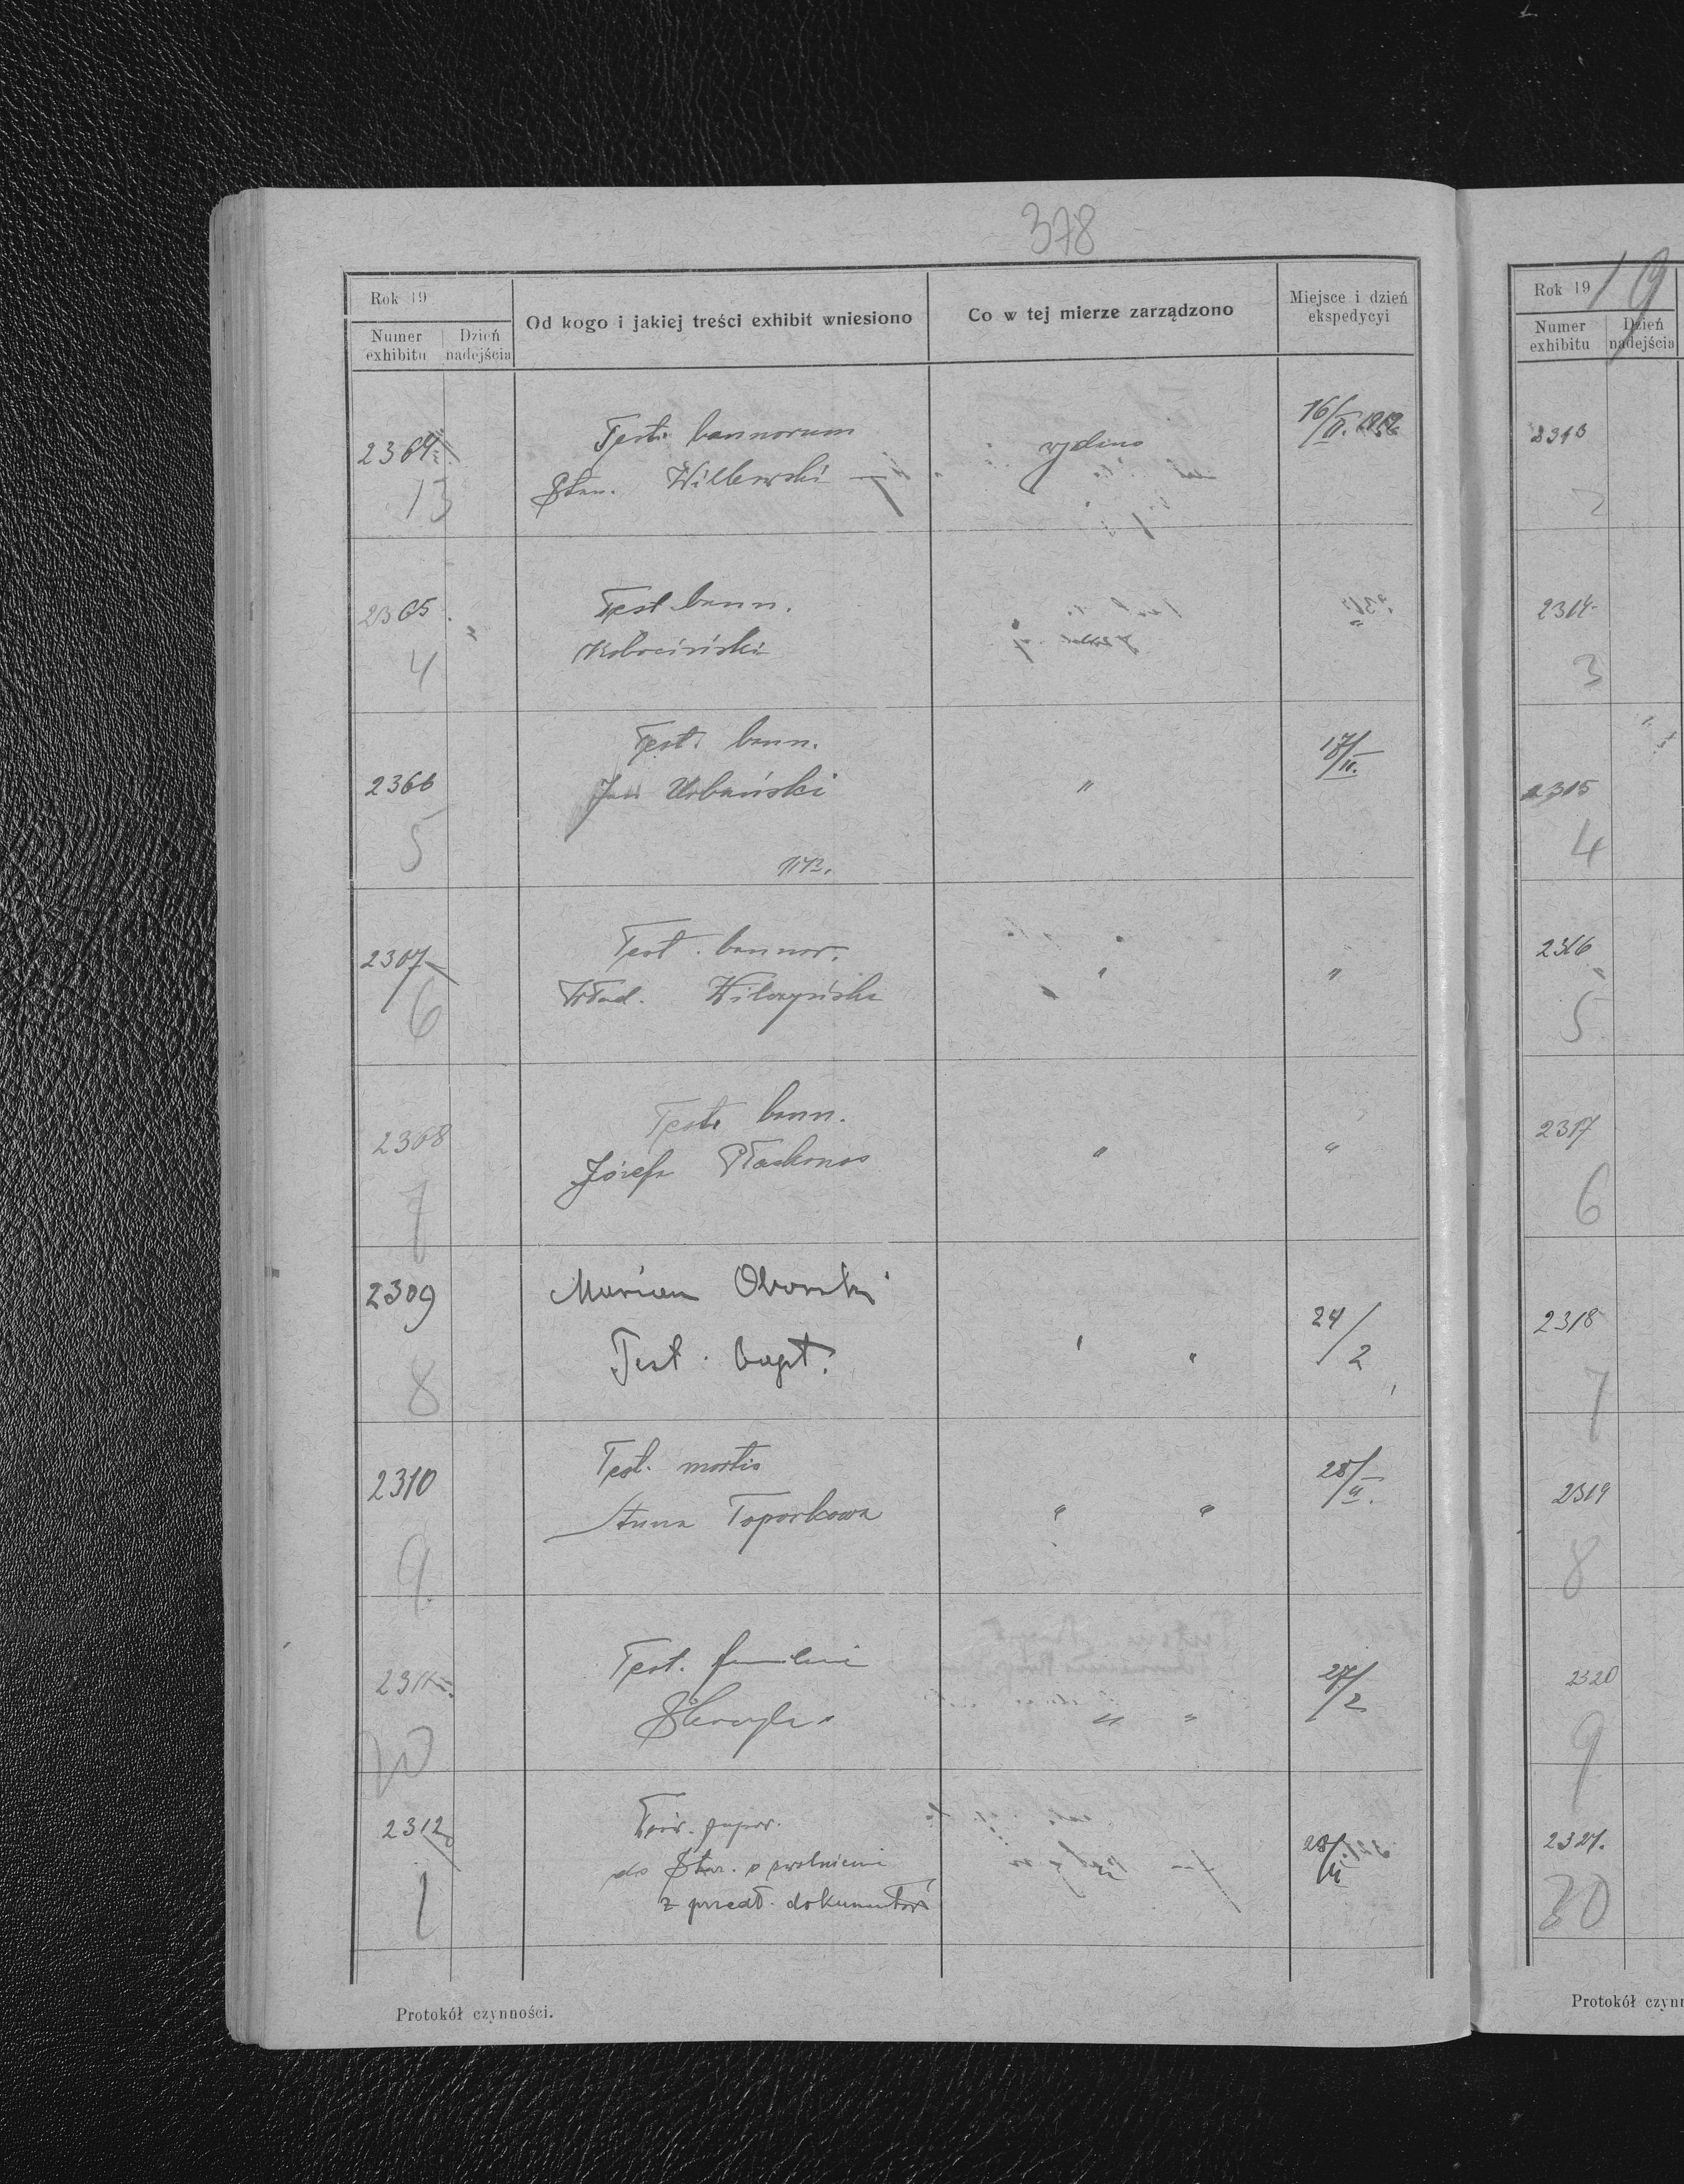 378
Rok 19
Numer exhibitu
Dzień nadejścia
Od kogo i jakiej treści exhibit wniesiono
Co w tej mierze zarządzono
Miejsce i dzień ekspedycyi
2364
13
Test. bannorum
Stan.
16/II.
2365
4
Test. bann.
2366
5
Test. bann.
Jan Urbański
"
17/II.
2307
6
Test. bannor.
Wład. Wilczyński
"
"
2308
7
Test. bann.
Józefa Płaskonos
"
"
2309
8
Marian Oborski
Test. bapt.
" "
24/2
2310
9
Test. mortis
Anna Toporkowa
" "
2311
20
Test. familiae
" "
27/2
2312
1
z przedł. dokumentów
28/II
Protokół czynności.
Rok 1919
Numer exhibitu
Dzień nadejścia
2313
2
2314
3
2315
4
2316
5
2317
6
2318
7
2319
8
2320
9
2321.
30
Protokół czynn